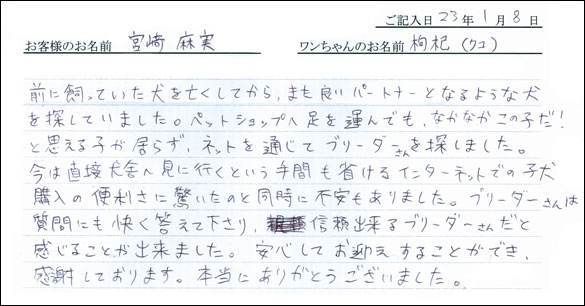 ご記入日 23年 1月 8日
お客様のお名前 宮崎 麻実 ワンちゃんのお名前 枸杞(クコ)
前に飼っていた犬を亡くしてから、また良いパートナーとなるような犬
を探していました。ペットショップへ足を運んでも、なかなかこの子だ!
と思える子が居らず、ネットを通じてブリーダーさんを探しました。
今は直接犬舎へ見に行くという手間も省けるインターネットでの子犬
購入の便利さに驚いたのと同時に不安もありました。ブリーダーさんは
質問にも快く答えて下さり、信頼出来るブリーダーさんだと
感じることが出来ました。安心してお迎えすることができ、
感謝しております。本当にありがとうございました。